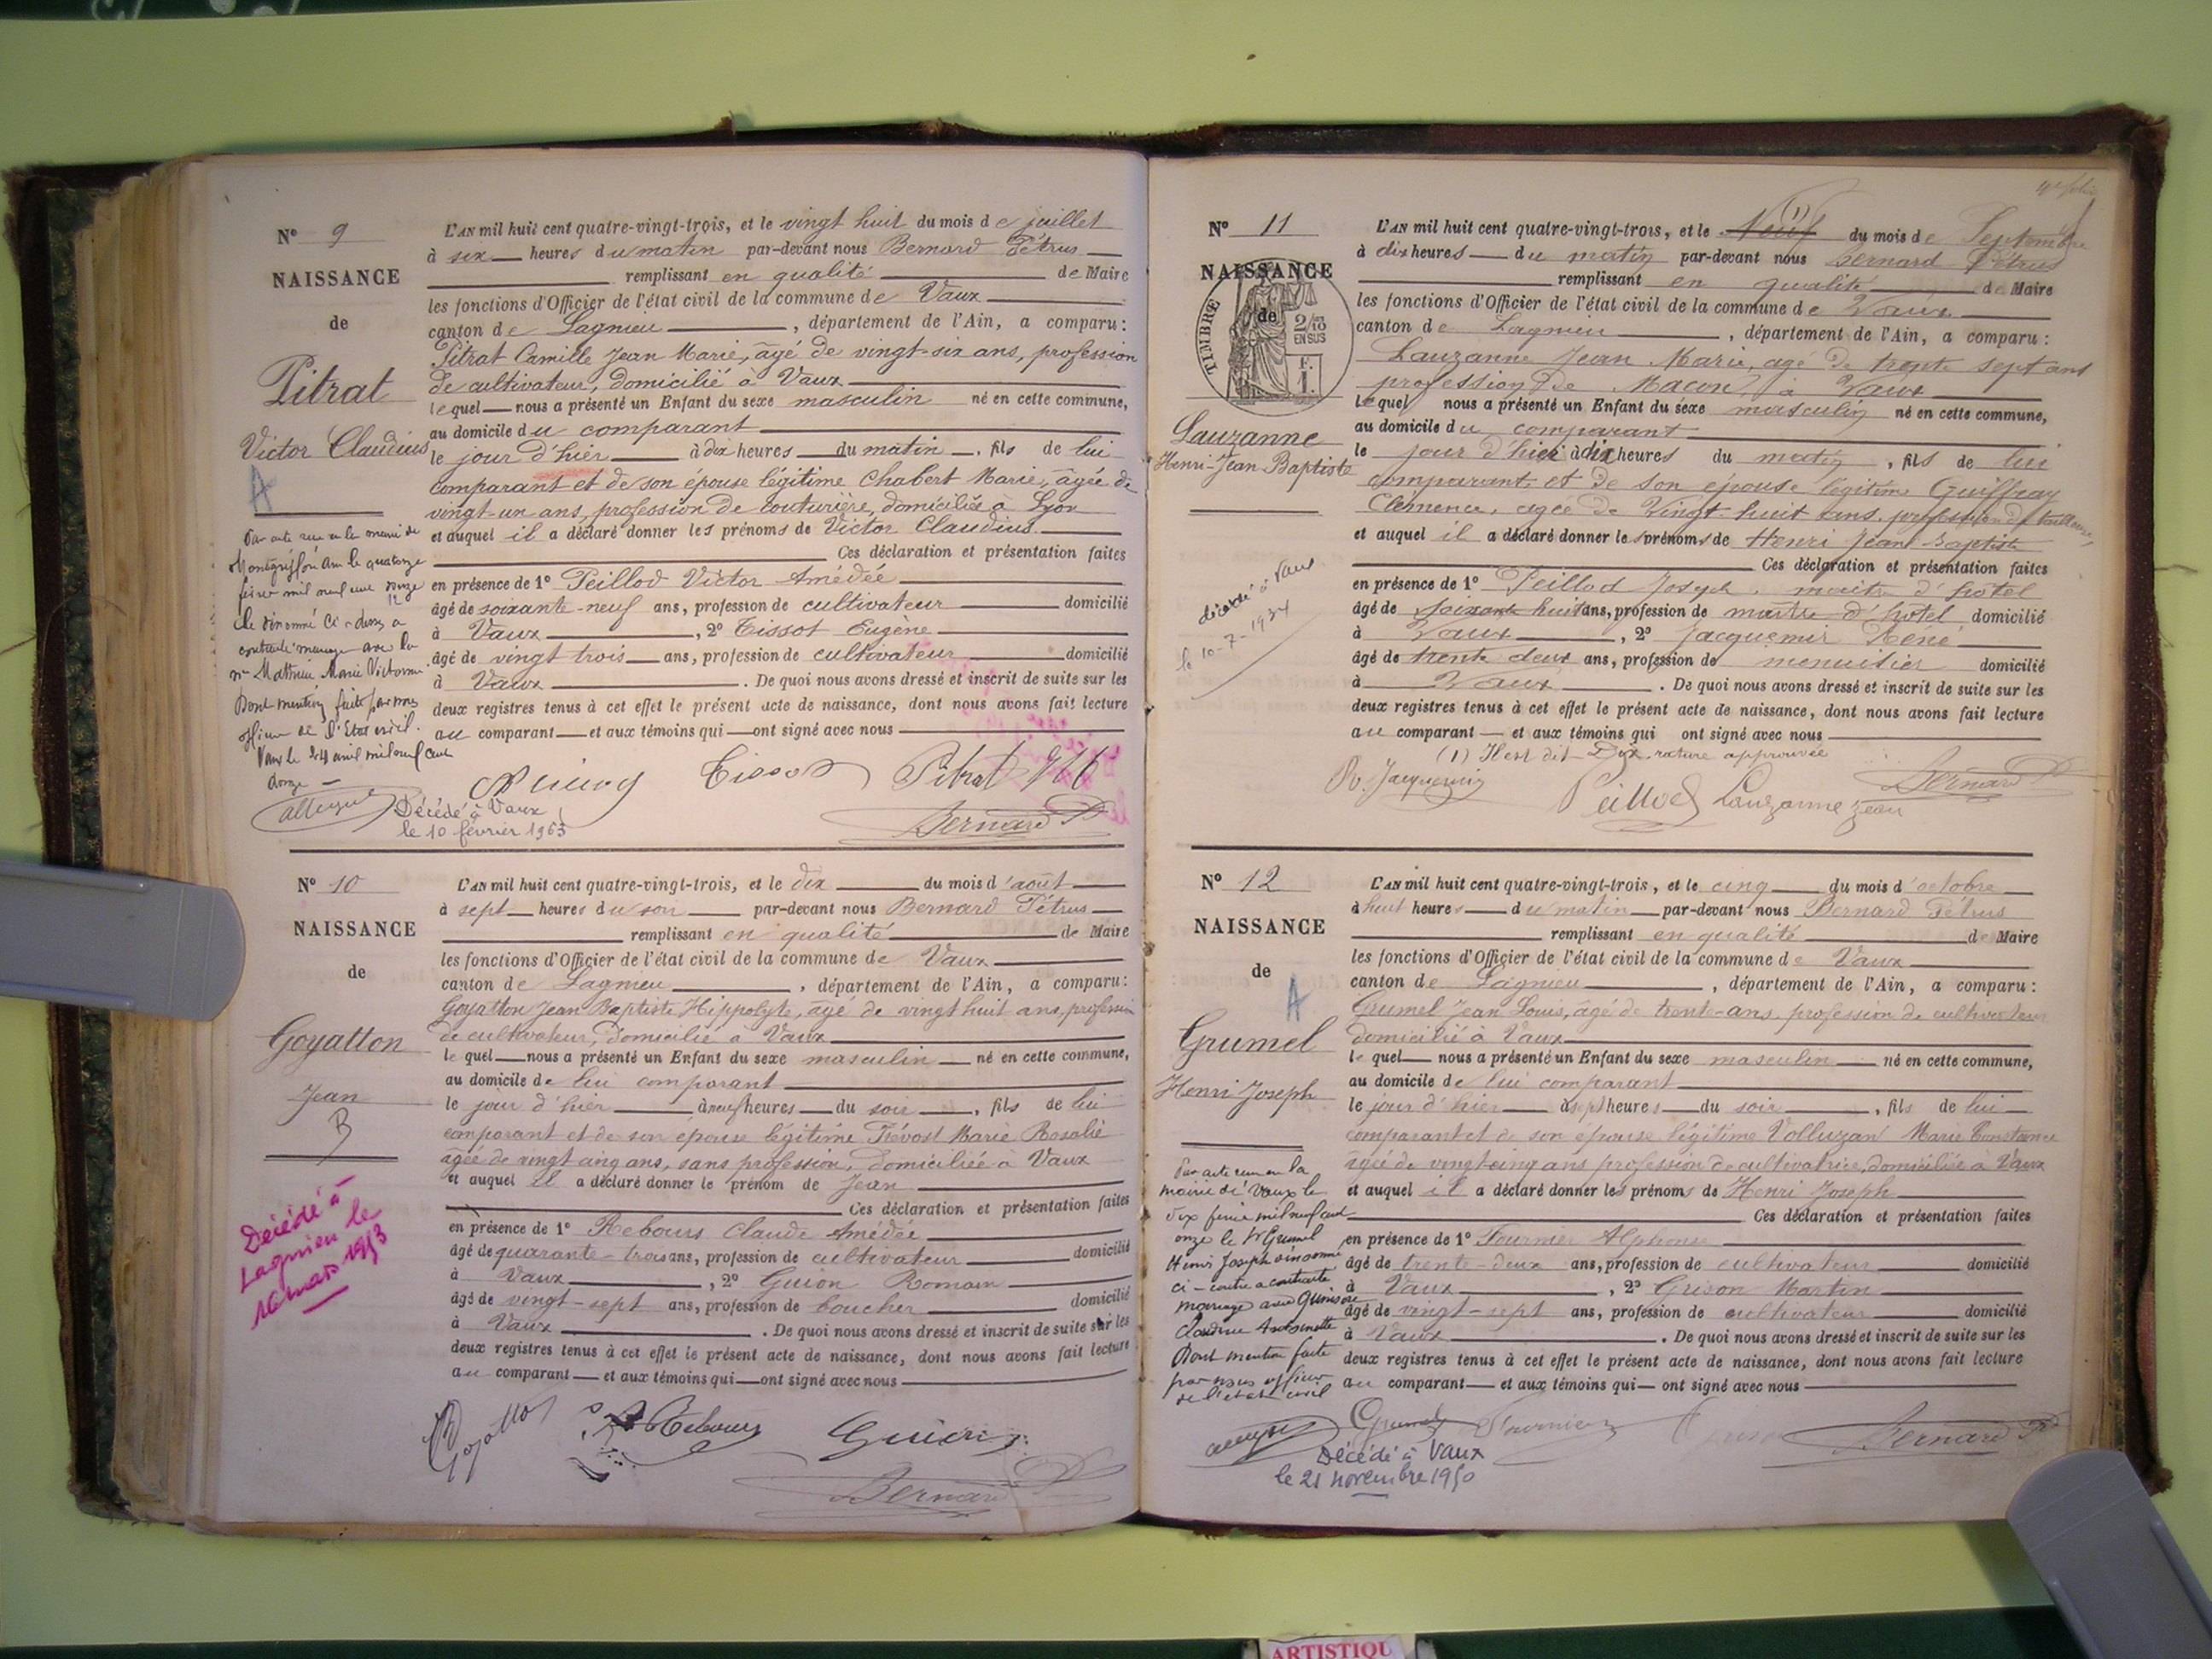 N° 9
NAISSANCE
de
Pitrat
Victor Claudius
A
L'AN mil huit cent quatre-vingt-trois, et le vingt huit du mois de juillet
à six heures du matin par-devant nous Bernard Pétrus
remplissant en qualité de Maire
les fonctions d'Officier de l'état civil de la commune de Vaux
canton de Lagnieu, département de l'Ain, a comparu :
Pitrat Camille Jean Marie, âgé de vingt-six ans, profession
de cultivateur, domicilié à Vaux
lequel nous a présenté un Enfant du sexe masculin né en cette commune,
au domicile du comparant
le jour d'hier à dix heures du matin, fils de lui
comparant et de son épouse légitime Chabert Marie, âgée de
vingt-un ans, profession de couturière, domiciliés à Lyon
et auquel il a déclaré donner les prénoms de Victor Claudius.
Ces déclaration et présentation faites
en présence de 1° Peillod Victor Amédée
âgé de soixante-neuf ans, profession de cultivateur domicilié
à Vaux, 2° Tissot Eugène
âgé de vingt trois ans, profession de cultivateur domicilié
à Vaux. De quoi nous avons dressé et inscrit de suite sur les
deux registres tenus à cet effet le présent acte de naissance, dont nous avons fait lecture
au comparant et aux témoins qui ont signé avec nous
Par acte reçu en la mairie de
le quatorze
février mil neuf cent
12
le dénommé ci-dessus a
contracté mariage avec la
Marie Victorine
Dont mention faite par nous
officier de l'Etat civil.
Vaux le 24 avril mil neuf cent
douze
Tissot Pitrat
Bernard P
Décédé à Vaux
le 10 février 1963
N° 10
NAISSANCE
de
Goyatton
Jean
B
L'AN mil huit cent quatre-vingt-trois, et le dix du mois d'août
à sept heures du soir par-devant nous Bernard Pétrus
remplissant en qualité de Maire
les fonctions d'Officier de l'état civil de la commune de Vaux
canton de Lagnieu, département de l'Ain, a comparu :
Goyatton Jean Baptiste Hippolyte, âgé de vingt huit ans, profession
de cultivateur, domicilié à Vaux
lequel nous a présenté un Enfant du sexe masculin né en cette commune,
au domicile de lui comparant
le jour d'hier à neuf heures du soir, fils de lui
comparant et de son épouse légitime Prévost Marie Rosalie
âgée de vingt cinq ans, sans profession, domiciliée à Vaux
et auquel il a déclaré donner le prénom de Jean
Ces déclaration et présentation faites
en présence de 1° Rebours Claude Amédée
âgé de quarante-trois ans, profession de cultivateur domicilié
à Vaux, 2° Guion Romain
âgé de vingt-sept ans, profession de boucher domicilié
à Vaux. De quoi nous avons dressé et inscrit de suite sur les
deux registres tenus à cet effet le présent acte de naissance, dont nous avons fait lecture
au comparant et aux témoins qui ont signé avec nous
Décédé à
Lagnieu le
16 mars 1953
Goyatton Rebours Guion
Bernard P
N° 11
NAISSANCE
de
TIMBRE
2/10
EN SUS
F.
1.
Lauzanne
Henri-Jean Baptiste
L'AN mil huit cent quatre-vingt-trois, et le Neuf (1) du mois de Septembre
à dix heures du matin par-devant nous Bernard Pétrus
remplissant en qualité de Maire
les fonctions d'Officier de l'état civil de la commune de Vaux
canton de Lagnieu, département de l'Ain, a comparu :
Lauzanne Jean Marie, agé de trente sept ans
profession de Macon, à Vaux
lequel nous a présenté un Enfant du sexe masculin né en cette commune,
au domicile du comparant
le jour d'hier à dix heures du matin, fils de lui
comparant et de son épouse légitime Guiffray
Clemence, agée de Vingt-huit ans, profession de tailleuse,
et auquel il a déclaré donner les prénoms de Henri Jean Baptiste
Ces déclaration et présentation faites
en présence de 1° Peillod Joseph, maitre d'hotel
âgé de soixante huit ans, profession de maitre d'hotel domicilié
à Vaux, 2° Jacquemir René
âgé de trente deux ans, profession de menuisier domicilié
à Vaux. De quoi nous avons dressé et inscrit de suite sur les
deux registres tenus à cet effet le présent acte de naissance, dont nous avons fait lecture
au comparant et aux témoins qui ont signé avec nous
(1) Il est dit Dix. rature approuvée
décédé à Vaux
le 10-7-1934
R. Jacquemir Peillod Lauzanne Jean Bernard P
N° 12
NAISSANCE
de
A
Grumel
Henri Joseph
L'AN mil huit cent quatre-vingt-trois, et le cinq du mois d'octobre
à huit heures du matin par-devant nous Bernard Pétrus
remplissant en qualité de Maire
les fonctions d'Officier de l'état civil de la commune de Vaux
canton de Lagnieu, département de l'Ain, a comparu :
Grumel Jean Louis, âgé de trente-ans, profession de cultivateur
domicilié à Vaux
lequel nous a présenté un Enfant du sexe masculin né en cette commune,
au domicile de lui comparant
le jour d'hier à sept heures du soir, fils de lui
comparant et de son épouse légitime Volluzan Marie Constance
âgée de vingt-cinq ans profession de cultivatrice, domiciliée à Vaux
et auquel il a déclaré donner les prénoms de Henri Joseph
Ces déclaration et présentation faites
en présence de 1° Fournier Alphonse
âgé de trente-deux ans, profession de cultivateur domicilié
à Vaux, 2° Grison Martin
âgé de vingt-sept ans, profession de cultivateur domicilié
à Vaux. De quoi nous avons dressé et inscrit de suite sur les
deux registres tenus à cet effet le présent acte de naissance, dont nous avons fait lecture
au comparant et aux témoins qui ont signé avec nous
Par acte reçu en la
mairie de Vaux le
dix février mil neuf cent
onze le Sr Grumel
Henri Joseph dénommé
ci-contre a contracté
mariage avec
Claudine Antoinette
Dont mention faite
par nous officier
de l'état civil
Grumel Fournier Bernard P
Décédé à Vaux
le 21 novembre 1950
ARTISTIQU